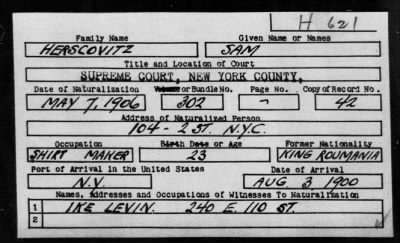 H 621
Family Name Given Name or Names
HERSCOVITZ SAM
Title and Location of Court
SUPREME COURT, NEW YORK COUNTY,
Date of Naturalization Volume or Bundle No. Page No. Copy of Record No.
MAY 7, 1906 302 - 42
Address of Naturalized Person
104 - 2 ST. N.Y.C.
Occupation Birth Date or Age Former Nationality
SHIRT MAKER 23 KING ROUMANIA
Port of Arrival in the United States Date of Arrival
N.Y. AUG. 3, 1900
Names, Addresses and Occupations of Witnesses To Naturalization
1 IKE LEVIN. 240 E. 110 ST.
2